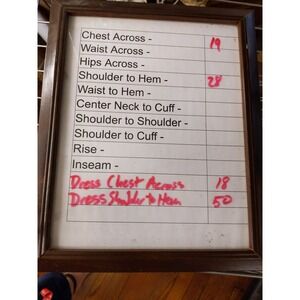 Chest Across - 19
Waist Across -
Hips Across -
Shoulder to Hem - 28
Waist to Hem -
Center Neck to Cuff -
Shoulder to Shoulder -
Shoulder to Cuff -
Rise -
Inseam -
Dress Chest Across 18
Dress Shoulder to Hem 50